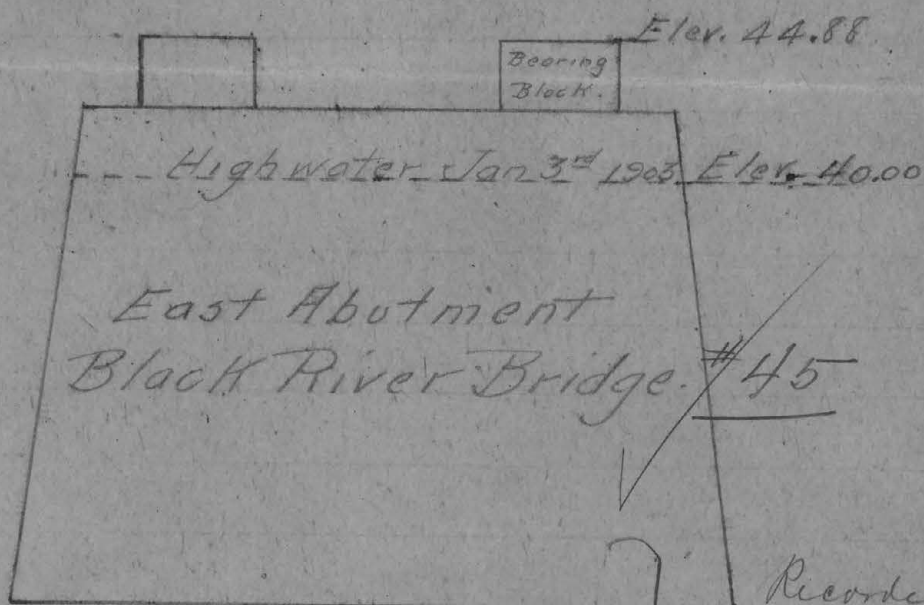 Elev. 44.88
Bearing
Block.
Highwater Jan 3rd 1903 Elev. 40.00
East Abutment
Black River Bridge.
#45